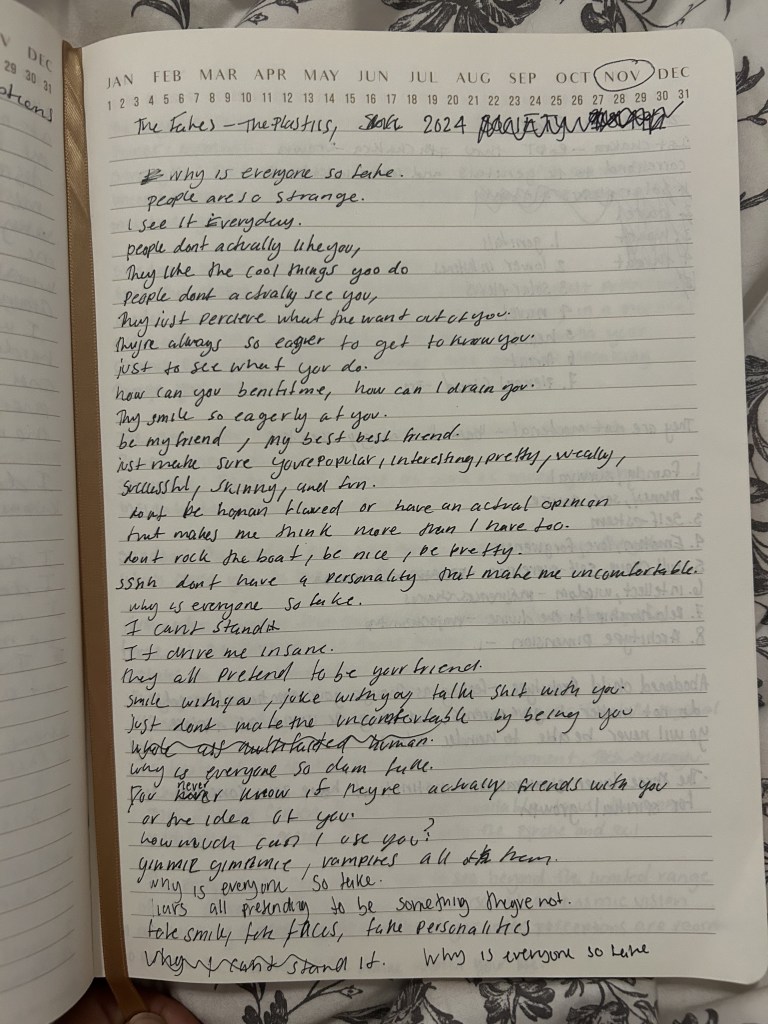 V DEC
29 30 31
ptions
JAN FEB MAR APR MAY JUN JUL AUG SEP OCT NOV DEC
1 2 3 4 5 6 7 8 9 10 11 12 13 14 15 16 17 18 19 20 21 22 23 24 25 26 27 28 29 30 31
The Fakes — The Plastics, 2024
why is everyone so fake.
people are so strange.
I see it Everyday.
people dont actually like you,
They like the cool things yoo do
people dont actually see you,
They just percieve what the want out of you.
theyre always so eagier to get to know you.
just to see what you do.
how can you benifit me, how can I drain you.
Thy smile so eagerly at you.
be my friend, my best best friend.
just make sure youre popular, interesting, pretty, weally,
successful, skinny, and fun.
dont be human flawed or have an actual opinion
that makes me think more than I have too.
dont rock the boat, be nice, be pretty.
sshh dont have a personality that make me uncomfortable.
why is everyone so fake.
I cant stand it
It drive me insane.
they all pretend to be your friend.
smile with you, joke with you talk shit with you.
Just dont make the uncomfortable by being you
whole ass multifaited human.
why is everyone so dam fake.
You never know if theyre actually friends with you
or the idea of you.
how much can I use you?
gimmie gimmie, vampires all of them.
why is everyone so fake.
liars all pretending to be something theyre not.
fake smile, fake faces, fake personalities
why I cant stand it. Why is everyone so fake